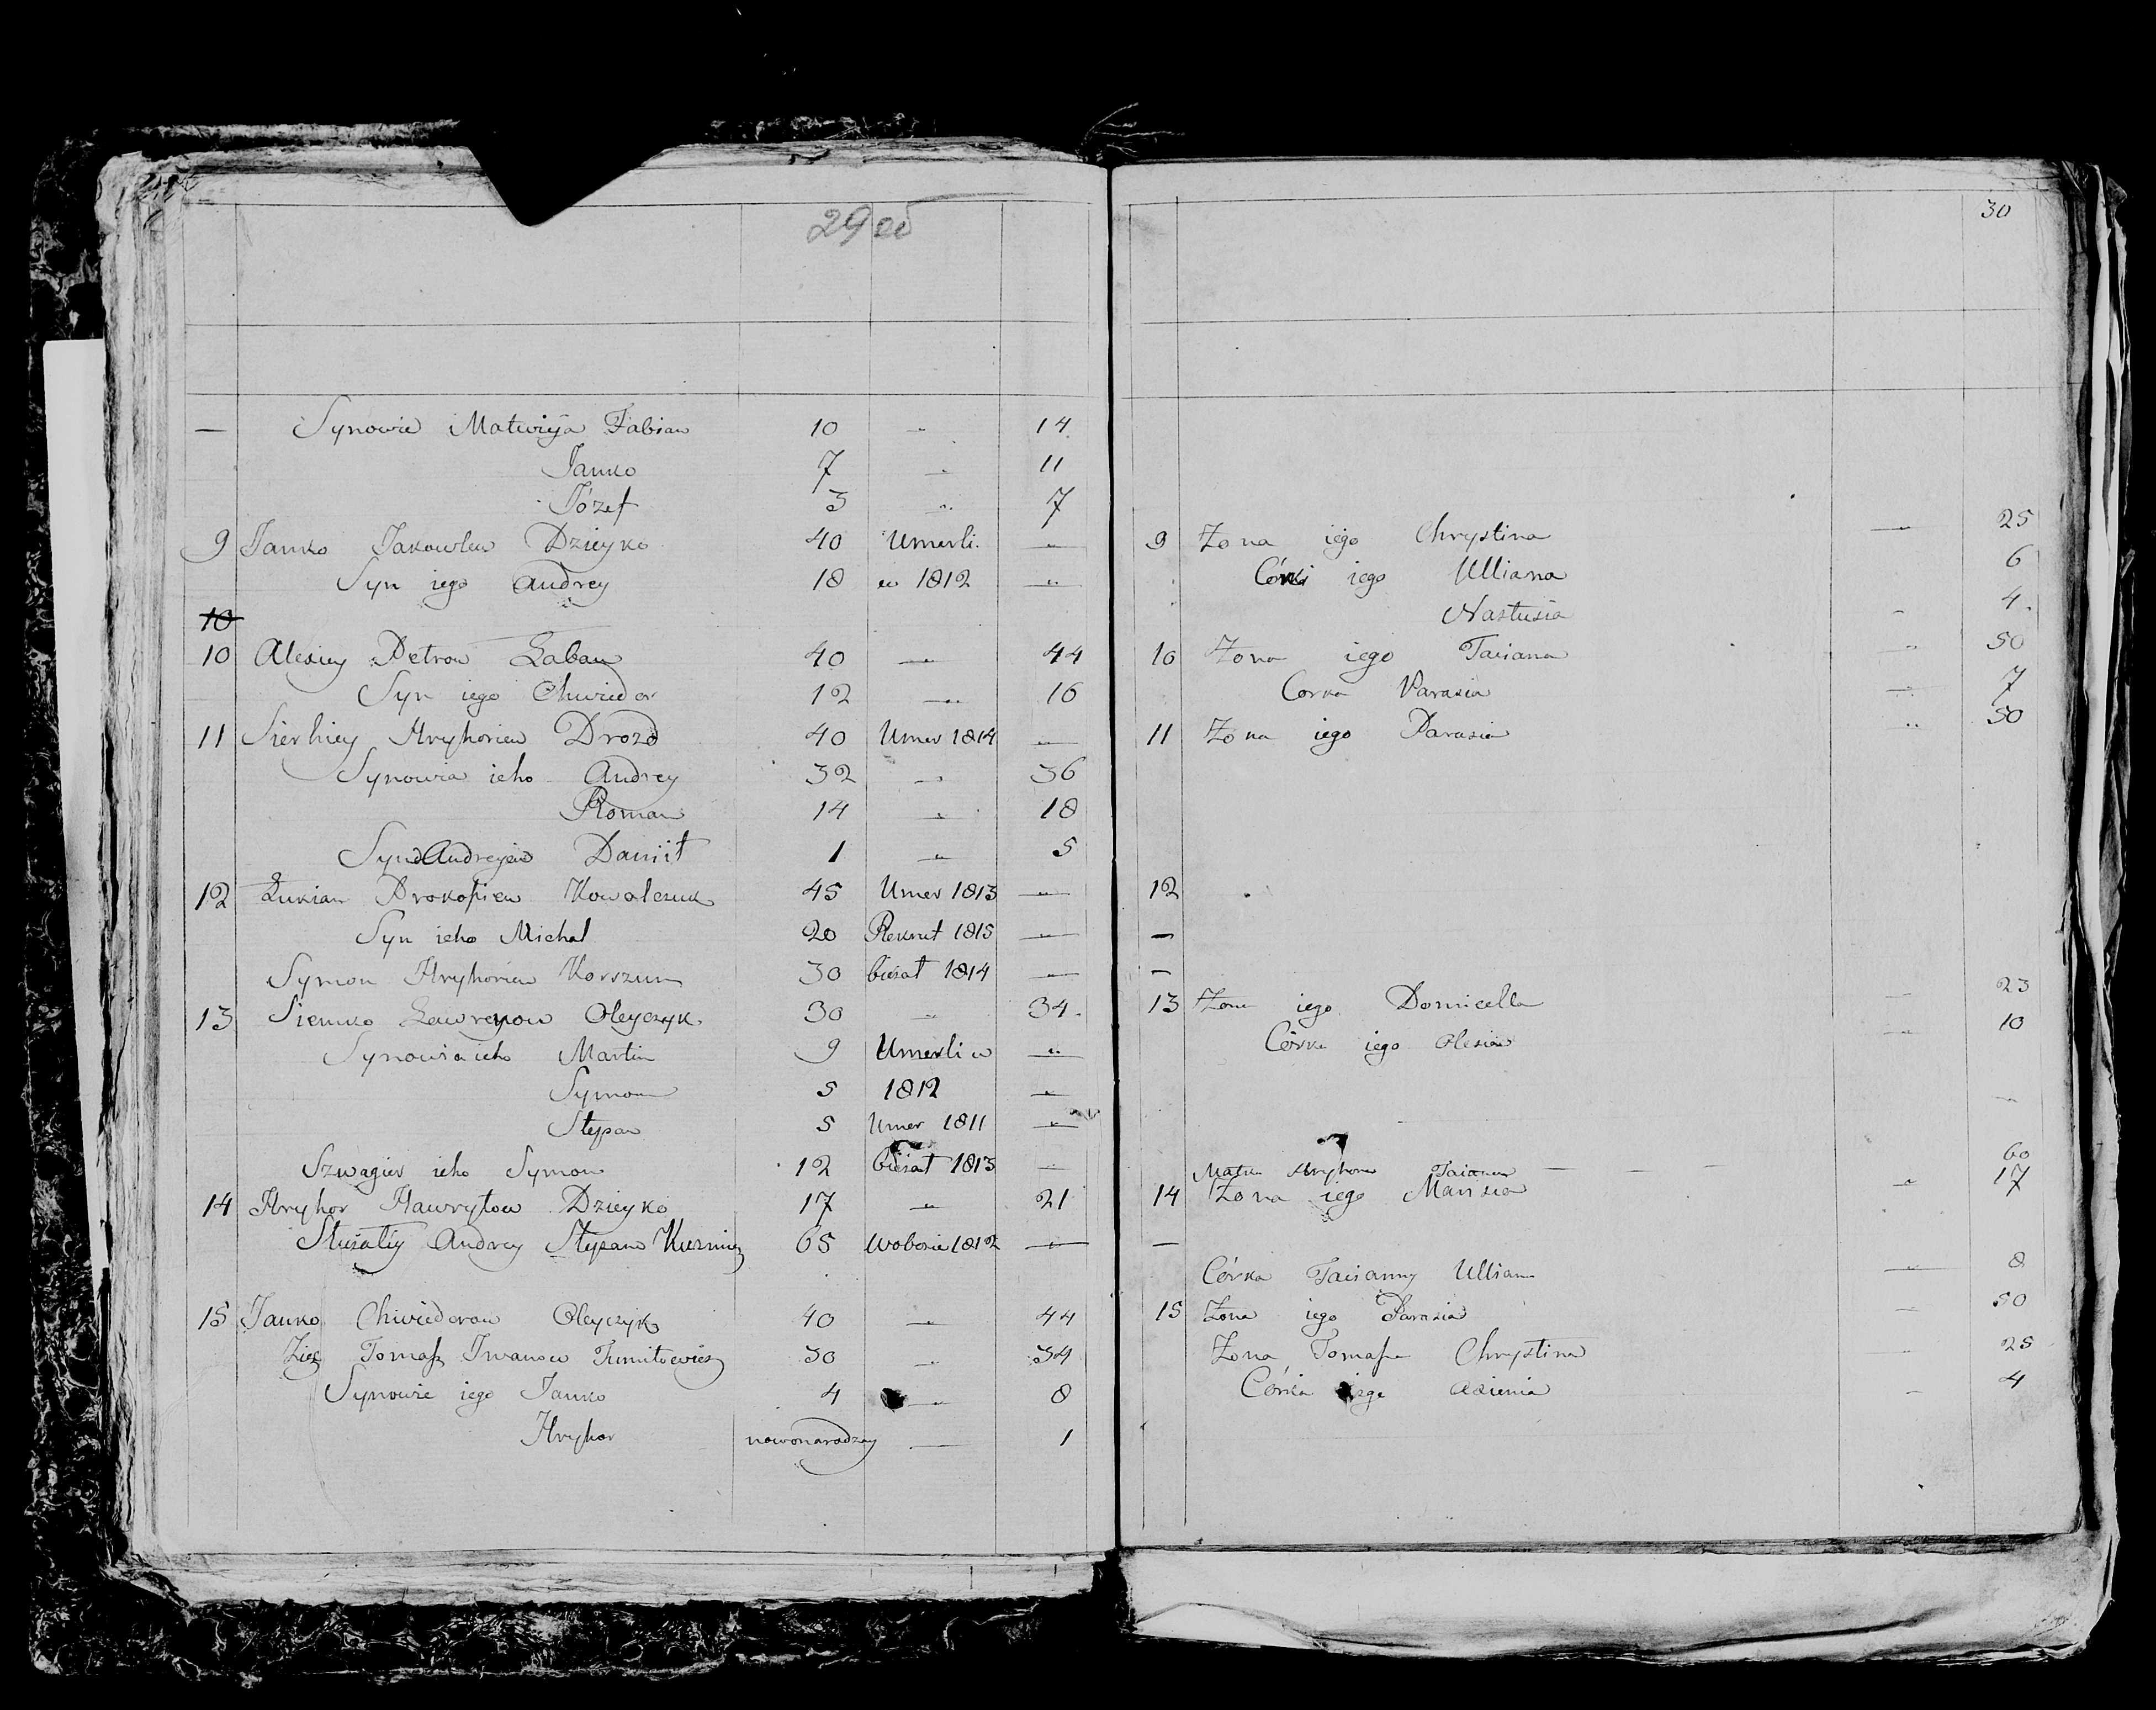 29 об
— Synowie Matwieja Fabian 10 „ 14
Janko 7 „ 11
Józef 3 „ 7
9 Janko Jakowlew Dzieyko 40 Umerli „
Syn iego Andrey 18 w 1812 „
10
10 Alexiey Petrow Laban 40 „ 44
Syn iego Chwiedor 12 „ 16
11 Sierhiey Hryhoriew Drozd 40 Umer 1814 „
Synowia ieho Andrey 32 „ 36
Roman 14 „ 18
Syn Andrejew Daniił 1 „ 5
12 Łukian Prokopiew Kowalczuk 45 Umer 1813 „
Syn ieho Michał 20 Rekrut 1815 „
Symon Hryhoriew Korszun 30 bieżał 1814 „
13 Siemko Ławrenow Oleyczyk 30 „ 34
Synowia ieho Martin 9 Umerli w „
Symon 5 1812 „
Stepan 5 Umer 1811 „
Szwagier ieho Symon 12 bieżał 1813 „
14 Hryhor Hawryłow Dzieyko 17 „ 21
Andrey Stepanow 65 1812 „
15 Janko Chwiedorow Oleyczyk 40 „ 44
Zięć Tomasz Iwanow 30 „ 34
Synowie iego Janko 4 „ 8
Hryhor nowonarodzny — 1
30
9 Żona iego Chrystina „ 25
Córki iego Ulliana 6
Nastusia „ 4
10 Żona iego Taciana „ 50
Corka Parasia „ 7
11 Żona iego Parasia „ 50
12
—
—
13 Żona iego Domicella — 23
Córka iego Olesia „ 10
Matka Hryhora Taciana — — — 60
14 Żona iego Marisia „ 17
—
Córka Tacianny Ulliana — 8
15 Żona iego Parasia „ 50
Żona Tomasza Chrystina „ 25
Córka iego Axienia „ 4